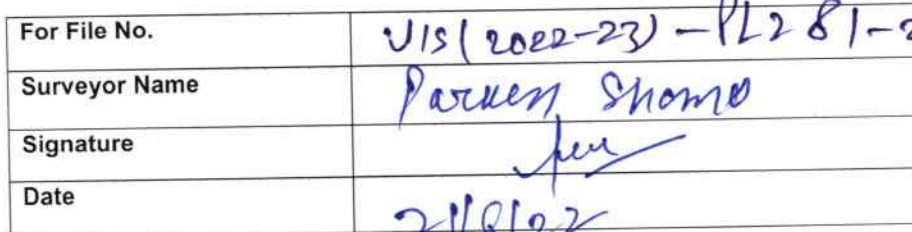 For File No. VIS(2022-23)-PL281-2
Surveyor Name Parveen Sharma
Signature
Date